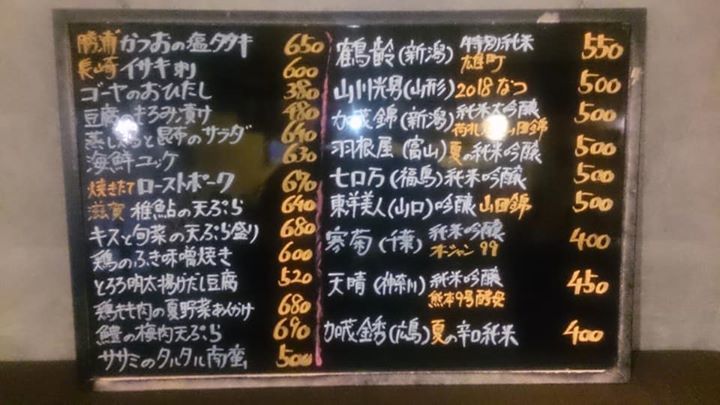 勝浦 かつおの塩タタキ 650
長崎 イサキ刺 600
ゴーヤのおひたし 380
豆腐 まろみ漬け 480
蒸し と昆布のサラダ 640
海鮮ユッケ 630
焼きたて ローストポーク 670
滋賀 稚鮎の天ぷら 640
キスと旬菜の天ぷら盛り 680
鶏のふき味噌焼き 600
とろろ明太揚げだし豆腐 520
鶏もも肉の夏野菜あんかけ 680
鱧の梅肉天ぷら 690
ササミのタルタル南蛮 500
鶴齢(新潟) 特別純米 雄町 550
山川光男(山形) 2018なつ 500
加茂錦(新潟) 純米大吟醸 山田錦 500
羽根屋(富山) 夏の純米吟醸 500
七ロ万(福島) 純米吟醸 500
東洋美人(山口) 吟醸 山田錦 500
寒菊(千葉) 純米吟醸 オーシャン99 400
天晴(神奈川) 純米吟醸 熊本9号酵母 450
加茂金秀(広島) 夏の辛口純米 400